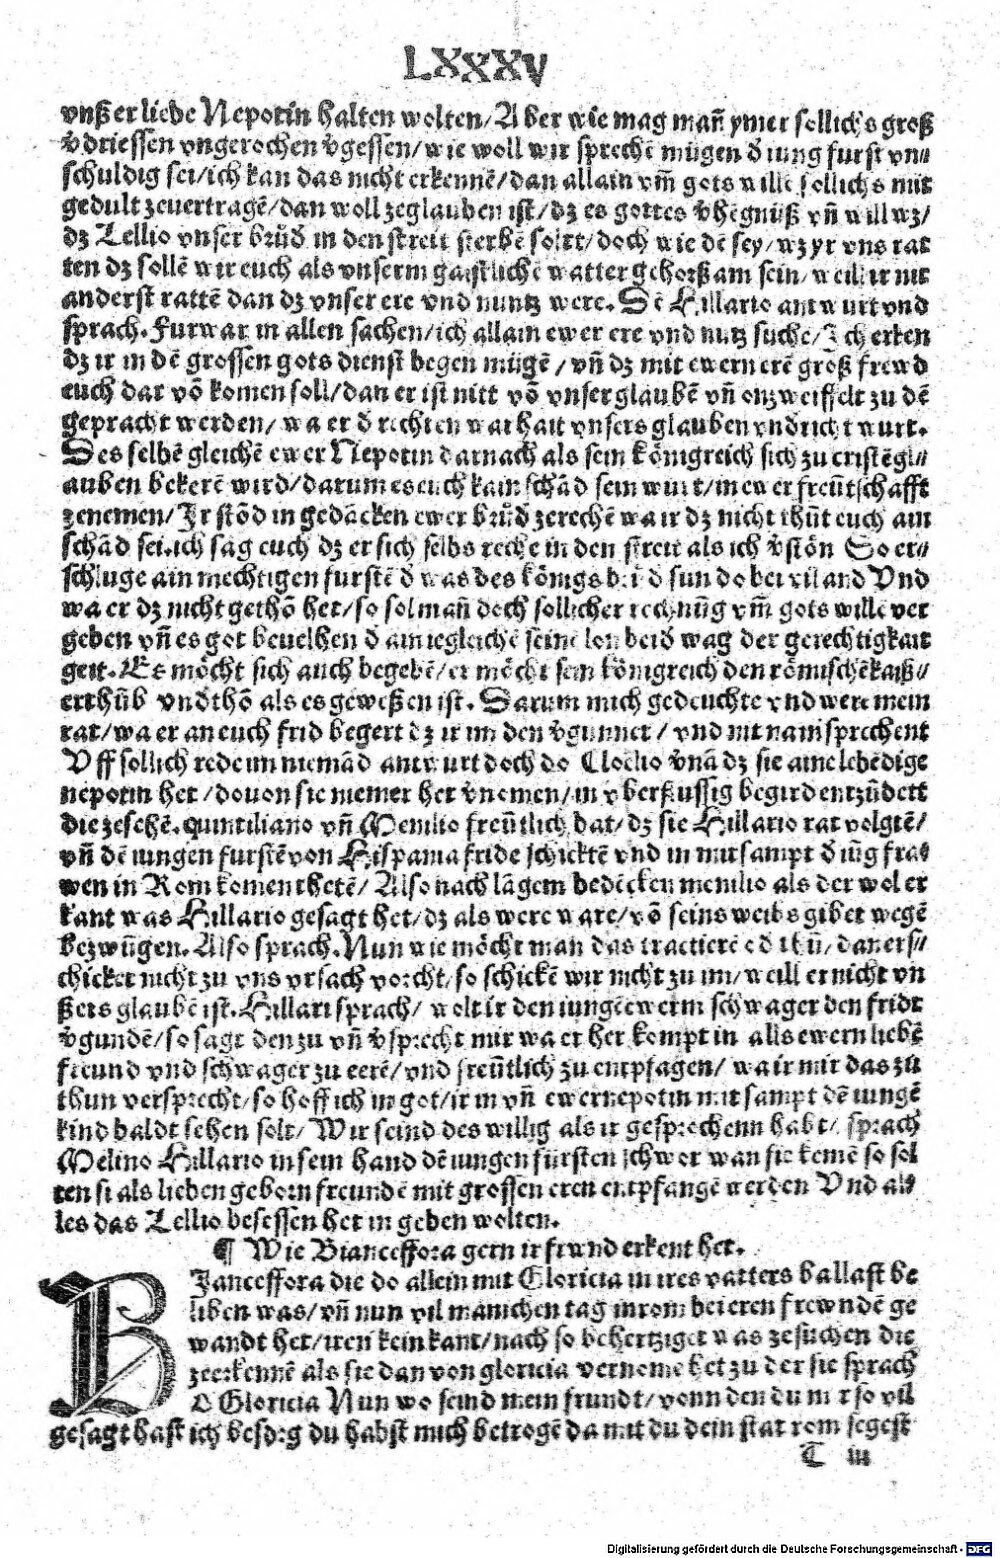 LXXXV
vnßer liebe Nepotin halten wolten/ Aber wie mag mañ ymer sollichs groß
v̄driessen vngerochen v̄gessen/ wie woll wir sprechē mügen d̄ iung furst vn⸗
schuldig sei/ ich kan das nicht erkennē/ dan allain vm̄ gots wille sollichs mit
gedult zeuertragē/ dan woll zeglauben ist/ dz es gottes v̄hēgnüß vñ will wz/
dz Lellio vnser brůd̄ in den streit sterbē solt/ doch wie dē sey/ wz yr vns rat
ten dz sollē wir euch als vnserm gaistlichē vatter gehorßam sein/ weil ir nit
anderst rattē dan dz vnser ere vnd nuntz were. Dē Hillario antwurt vnd
sprach. Furwar in allen sachen/ ich allain ewer ere vnd nutz suche/ Ich erken
dz ir in dē grossen gots dienst begen mügē/ vñ dz mit ewern erē groß frewd
euch dar vō komen soll/ dan er ist nitt vō vnser glaubē vñ onzweiffelt zu dē
gepracht werden/ wa er d̄ rechten warhait vnsers glauben vndricht wurt.
Des selbē gleichē ewer Nepotin darnach als sein königreich sich zu cristēgl⸗
auben bekerē wird/ darum es euch kain schād sein wurt/ in ewer freūtschafft
zenemen/ Ir stōd in gedäcken ewer brůd̄ zerechē wa ir dz nicht thūt euch ain
schād sei. ich sag euch dz er sich selbs reche in den streit als ich v̄stōn So er⸗
schluge ain mechtigen furstē d̄ was des königs brůd̄ sun do bei viland Vnd
wa er dz nicht gethō het/ so sol mañ doch sollicher rechnūg vm̄ gots wille ver
geben vñ es got beuelhen d̄ ain iegleichē seinē lon beid wag der gerechtigkait
geit. Es möcht sich auch begebē/ er möcht sein königreich den römischē kaiß⸗
erthūb vndthō als es geweßen ist. Darum mich gedeuchte vnd were mein
rat/ wa er an euch frid begert dz ir im den v̄gunnet/ vnd nit nain sprechent
Vff sollich rede im niemād antwurt doch do Cloelio v̄nā dz sie aine lebēdige
nepotin het/ douon sie niemer het v̄nemen/ in vberflussig begird entzūdett
die zesehē. quintiliano vñ Menilio freūtlich bat/ dz sie Hillario rat volgtē/
vñ dē iungen furstē von Hispania fride schicktē vnd in mitsampt d̄ iūg fra⸗
wen in Rom komen thetē/ Also nach lāgem bedēcken menilio als der wol er
kant was Hillario gesagt het/ dz als were ware/ vō seins weibs gibet wegē
bezwūgen. Also sprach. Nun wie möcht man das tractierē thū/ dan er s⸗
chicket nicht zu vns vrsach vorcht/ so schickē wir nicht zu im/ weill er nicht vn
ßers glaubē ist. Hillari sprach/ wolt ir den iungē ewerm schwager den fridt
v̄gundē/ so sagt den zu vñ v̄sprecht mir wa er her kompt in alls ewern liebē
freund vnd schwager zu eerē/ vnd freūtlich zu entpfagen/ wa ir mir das zů
thun versprecht/ so hoff ich in got/ ir in vñ ewer nepotin mit sampt dē iungē
kind baldt sehen solt/ Wir seind des willig als ir gesprochenn habt/ sprach
Melino Hillario in sein hand dē iungen fürsten schwor wan sie kemē so sol
ten si als lieben geborn freundē mit grossen eren entpfangē werden Vnd al⸗
les das Lellio besessen het in geben wolten.
¶ Wie Bianceffora gern ir frund erkent het.
BIanceffora die do allein mit Gloricia in ires vatters ballast be
liben was/ vñ nun vil manichen tag in rom bei eren frewndē ge
wandt het/ iren kein kant/ nach so behertziget was zesuchen die
zeerkennē als sie dan von gloricia vernomē het zu der sie sprach
O Gloricia Nun wo seind mein frundt/ vonn den du mir so vil
gesagt hast ich besorg du habst mich betrogē da mit du dein stat rom segest
T iii
Digitalisierung gefördert durch die Deutsche Forschungsgemeinschaft - DFG